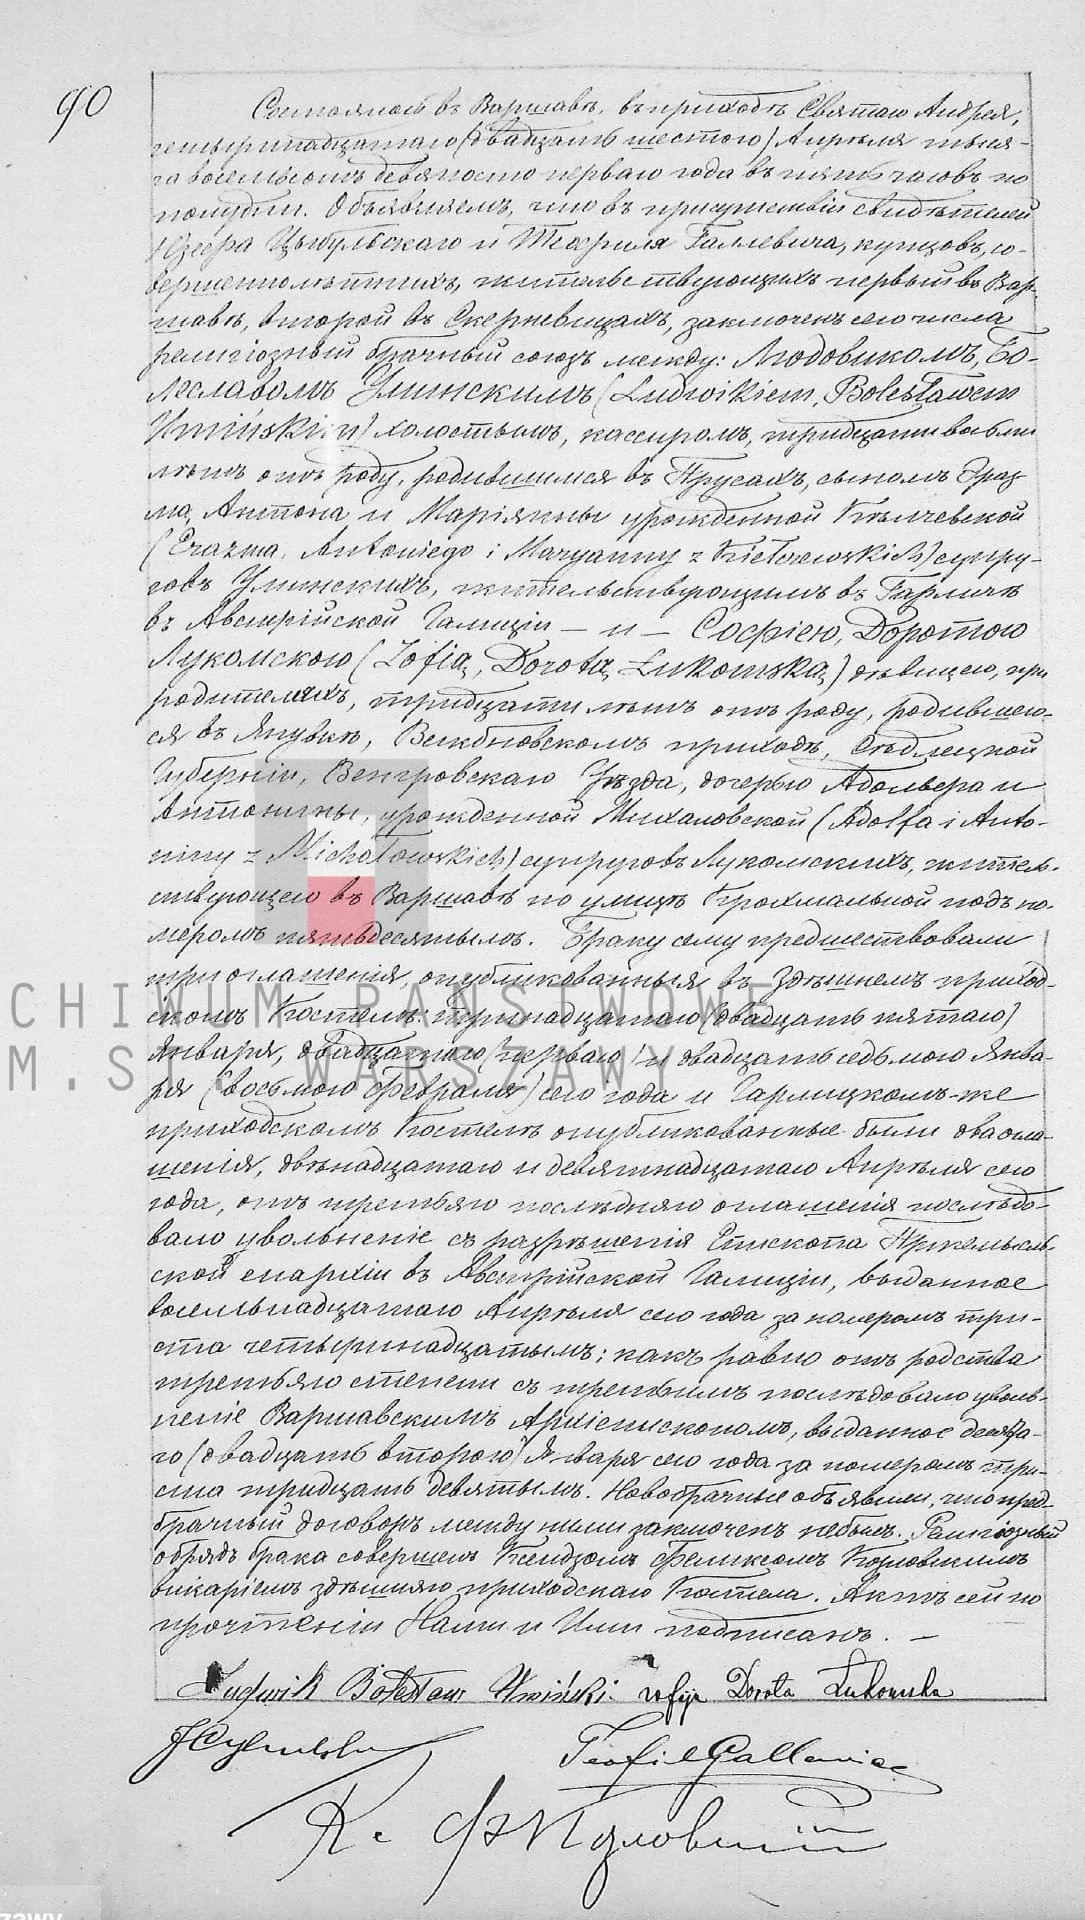 90
Состоялось въ Варшавѣ, въ приходѣ Святаго Андрея,
четырнадцатаго (двадцать шестого) Апрѣля тыся-
ча восемьсотъ девяносто перваго года въ пять часовъ по
полудни. Объявляемъ, что въ присутствіи свидѣтелей
Цыбульскаго и Теофиля Галлевича, купцовъ, со-
вершеннолѣтнихъ, жительствующихъ первый въ Вар-
шавѣ, второй въ Скерневицахъ, заключенъ сего числа
религіозный брачный союзъ между: Людовикомъ, Бо-
леславомъ Уминскимъ (Ludwikiem, Bolesławem
Umińskim) холостымъ, кассиромъ, тридцати восьми
лѣтъ отъ роду, родившимся въ Прусахъ, сыномъ Эраз-
ма, Антона и Маріянны урожденной Кѣлчевской
(Erazma, Antoniego i Maryanny z Kiełczewskich) супру-
говъ Уминскихъ, жительствующимъ въ Гарлицѣ
въ Австрійской Галиціи — и — Софіею, Доротою
Лукомскою (Zofią, Dorotą Łukomską) дѣвицею, при
родителяхъ, тридцати лѣтъ отъ роду, родившею-
ся въ Янувкѣ, приходѣ, Сѣдлецкой
Губерніи, Венгровскаго Уѣзда, дочерью Адольфа и
Антонины, урожденной Михаловской (Adolfa i Anto-
niny z Michałowskich) супруговъ Лукомскихъ, житель-
ствующею въ Варшавѣ по улицѣ Крохмальной подъ но-
меромъ пятьдесятымъ. Браку сему предшествовали
три оглашенія, опубликованныя въ здѣшнемъ приход-
скомъ Костелѣ: тринадцатаго (двадцать пятаго)
Января, двадцатаго (перваго) и двадцать седьмого Янва-
ря (восьмого Февраля) сего года и Гарлицкомъ-же
приходскомъ Костелѣ опубликованные были два огла-
шенія, двѣнадцатаго и девятнадцатаго Апрѣля сего
года, отъ третьяго послѣдняго оглашенія послѣдо-
вало увольненіе съ разрѣшенія Епископа Пржемысль-
ской епархіи въ Австрійской Галиціи, выданное
восемьнадцатаго Апрѣля сего года за номеромъ три-
ста четырнадцатымъ; какъ равно отъ родства
третьяго степени съ третьимъ послѣдовало уволь-
неніе Варшавскимъ Архіепископомъ, выданное деся́та-
го (двадцать второго) Января сего года за номеромъ три-
ста тридцать девятымъ. Новобрачные объявили, что пред-
брачный договоръ между ними заключенъ небылъ. Религіозный
обрядъ брака совершенъ Ксендзомъ Феликсомъ Козловскимъ
викаріемъ здѣшняго приходскаго Костела. Актъ сей по
прочтеніи Нами и Ими подписанъ. —
Ludwik Bolesław Umiński Zofija Dorota Łukomska
JCybulski Teofil Gallewicz
Кс Ф Козловскій
CHIWUM PAŃSTWOWE
M.ST. WARSZAWY
zawy